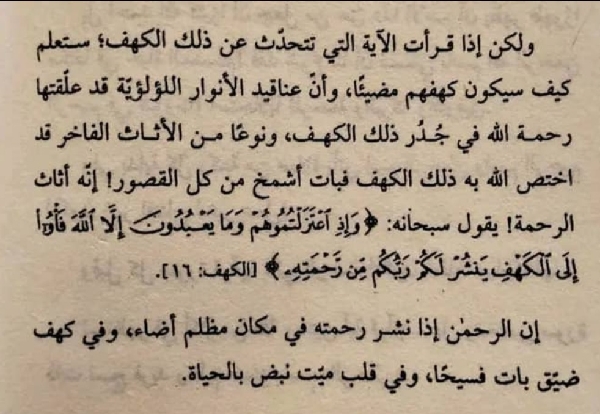 ولكن إذا قرأت الآية التي تتحدّث عن ذلك الكهف؛ ستعلم
كيف سيكون كهفهم مضيئًا، وأنّ عناقيد الأنوار اللؤلؤيّة قد علّقتها
رحمة الله في جُدُر ذلك الكهف، ونوعًا من الأثاث الفاخر قد
اختص الله به ذلك الكهف فبات أشمخ من كل القصور! إنّه أثاث
الرحمة! يقول سبحانه: ﴿وَإِذِ ٱعْتَزَلْتُمُوهُمْ وَمَا يَعْبُدُونَ إِلَّا ٱللَّهَ فَأْوُۥٓا۟
إِلَى ٱلْكَهْفِ يَنشُرْ لَكُمْ رَبُّكُم مِّن رَّحْمَتِهِۦ﴾ [الكهف: ١٦].
إن الرحمٰن إذا نشر رحمته في مكان مظلم أضاء، وفي كهف
ضيّق بات فسيحًا، وفي قلب ميّت نبض بالحياة.